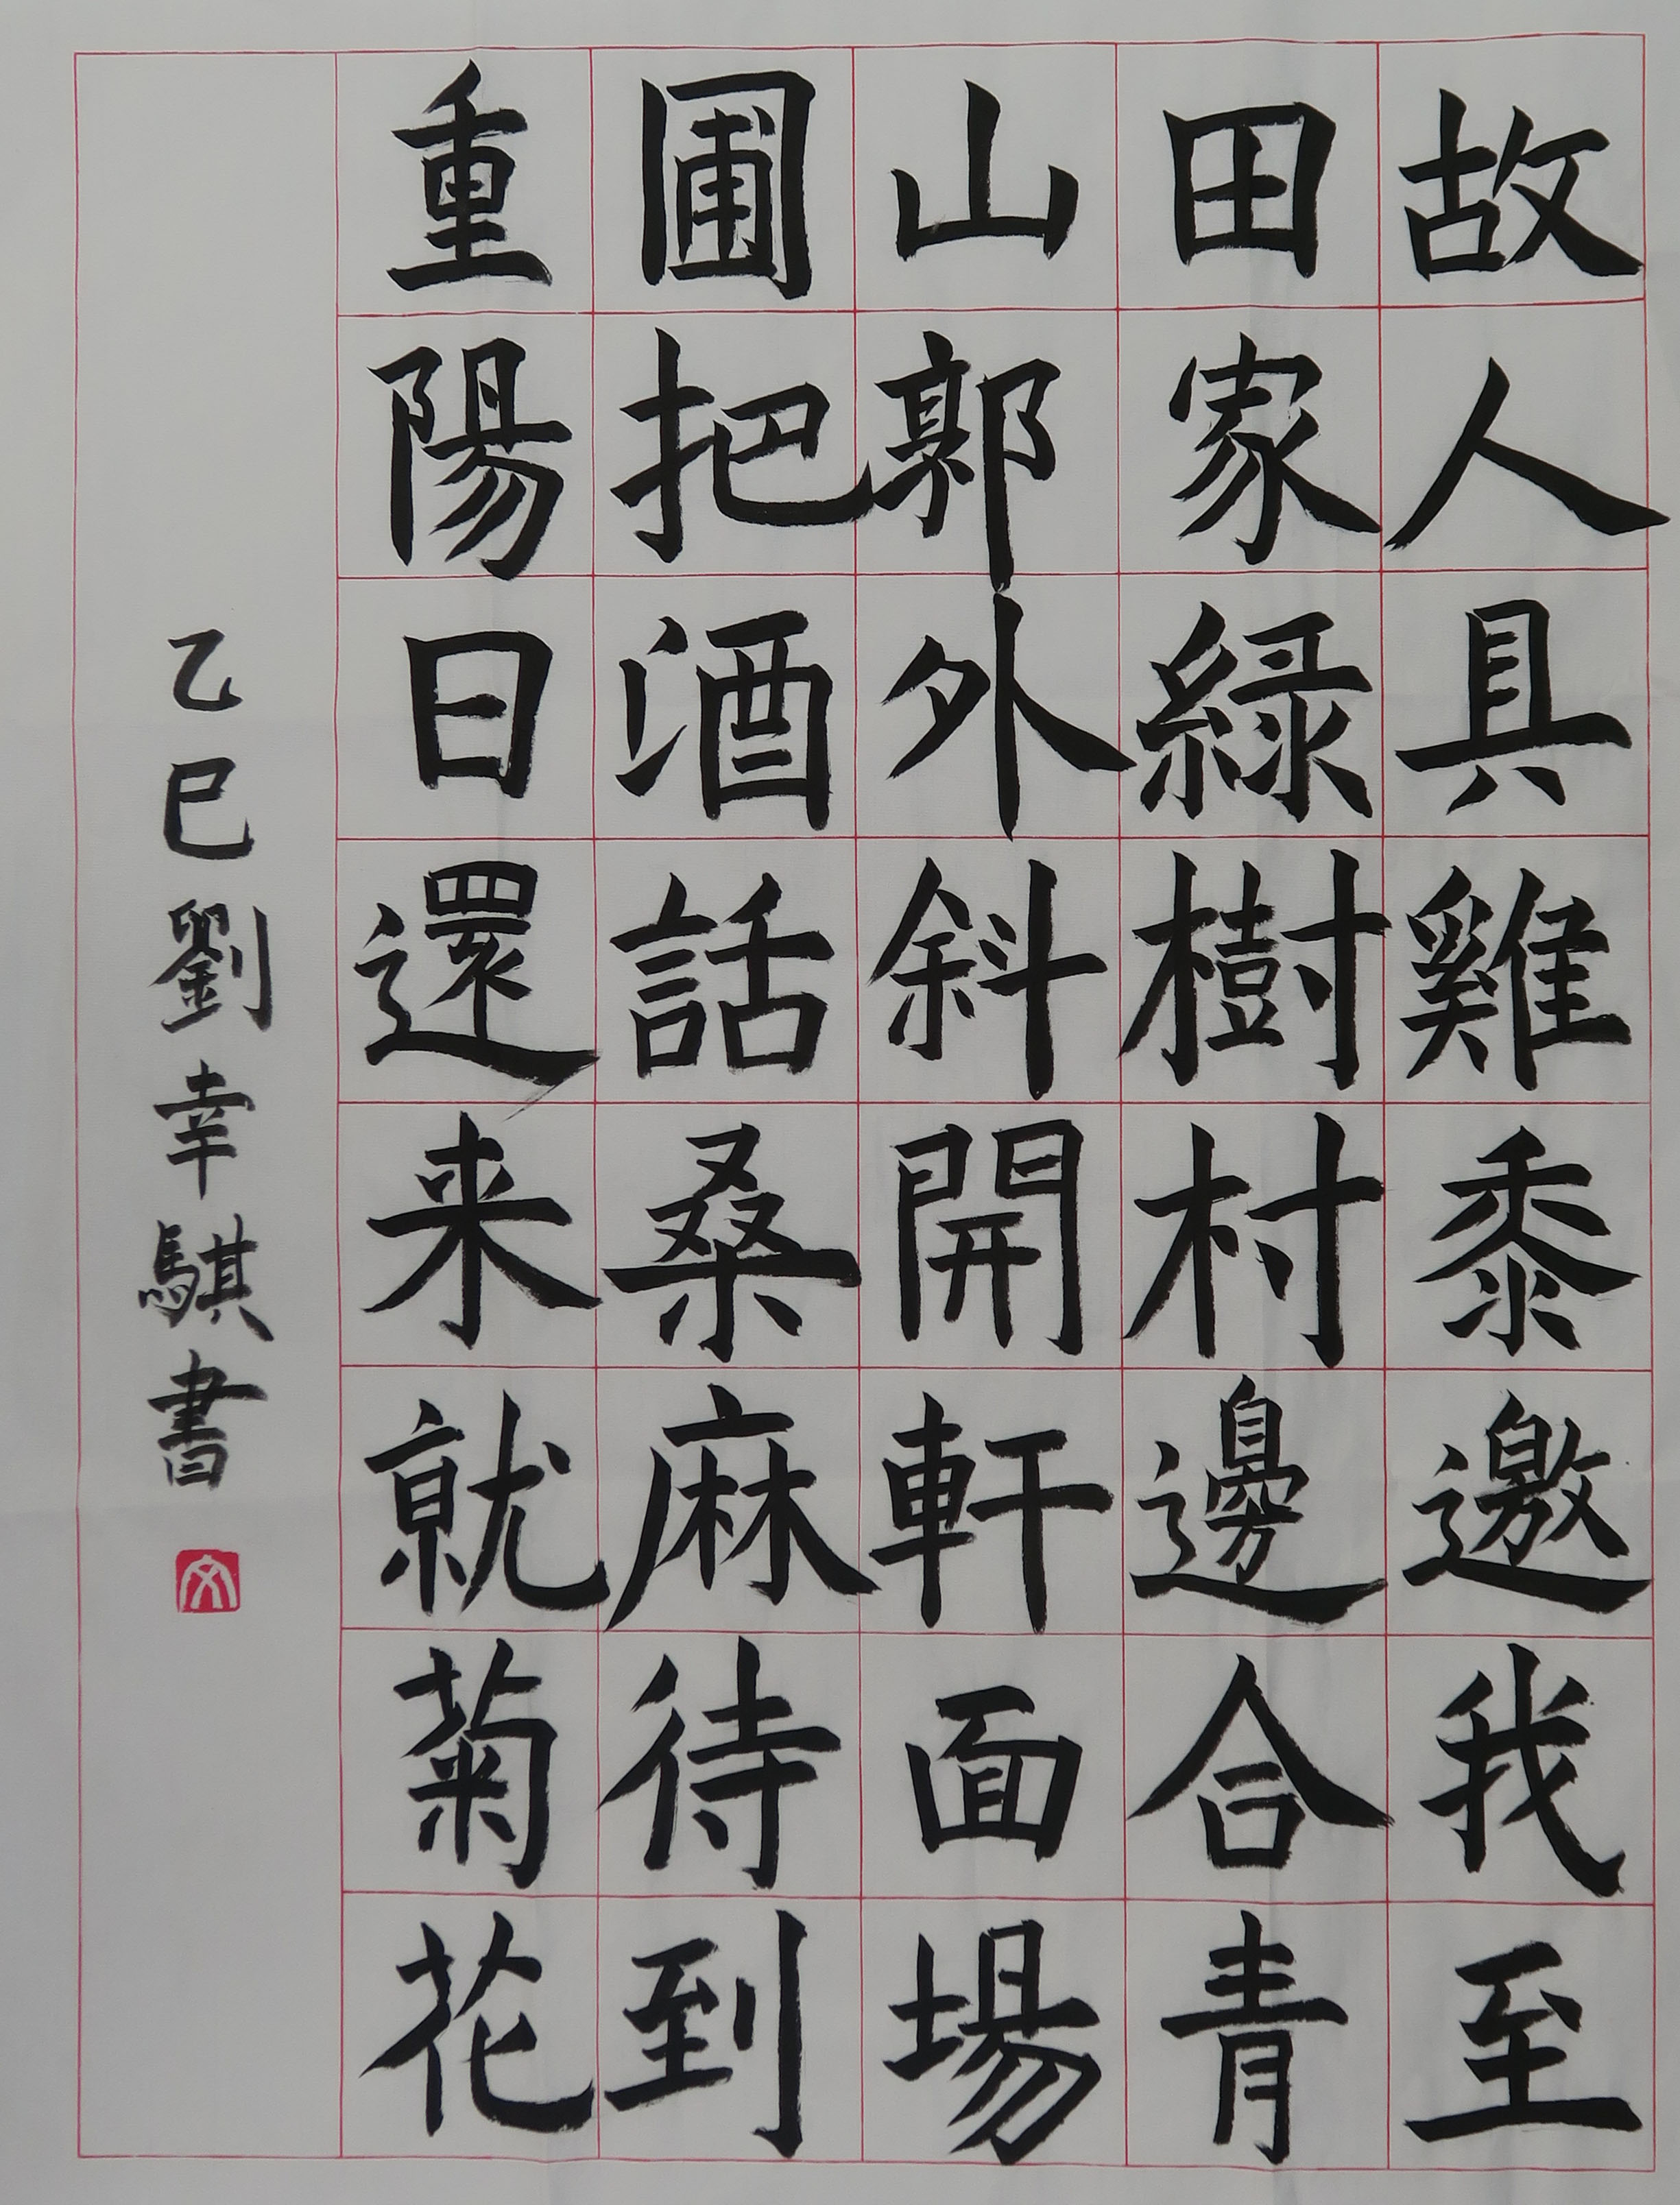 故人具雞黍邀我至
田家緑樹村邊合青
山郭外斜開軒面場
圃把酒話桑麻待到
重陽日還来就菊花
乙巳劉幸騏書
文